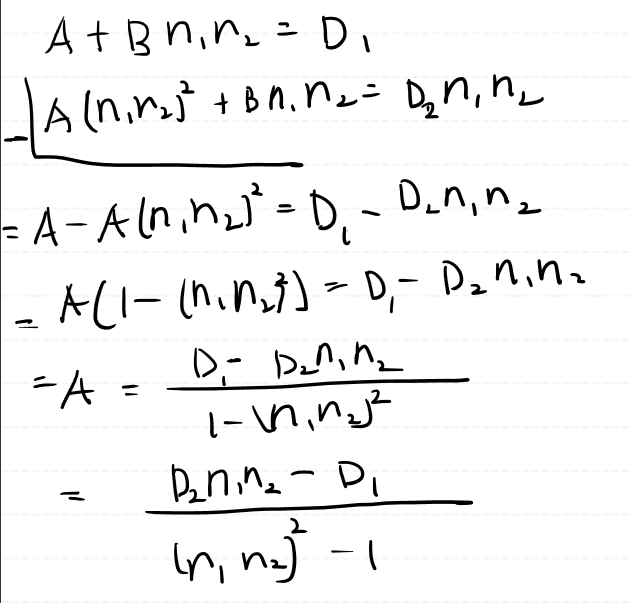 A + B n₁n₂ = D₁
- A(n₁n₂)² + B n₁n₂ = D₂n₁n₂
= A - A(n₁n₂)² = D₁ - D₂n₁n₂
= A(1 - (n₁n₂)²) = D₁ - D₂n₁n₂
= A = (D₁ - D₂n₁n₂) / (1 - (n₁n₂)²)
= (D₂n₁n₂ - D₁) / ((n₁n₂)² - 1)